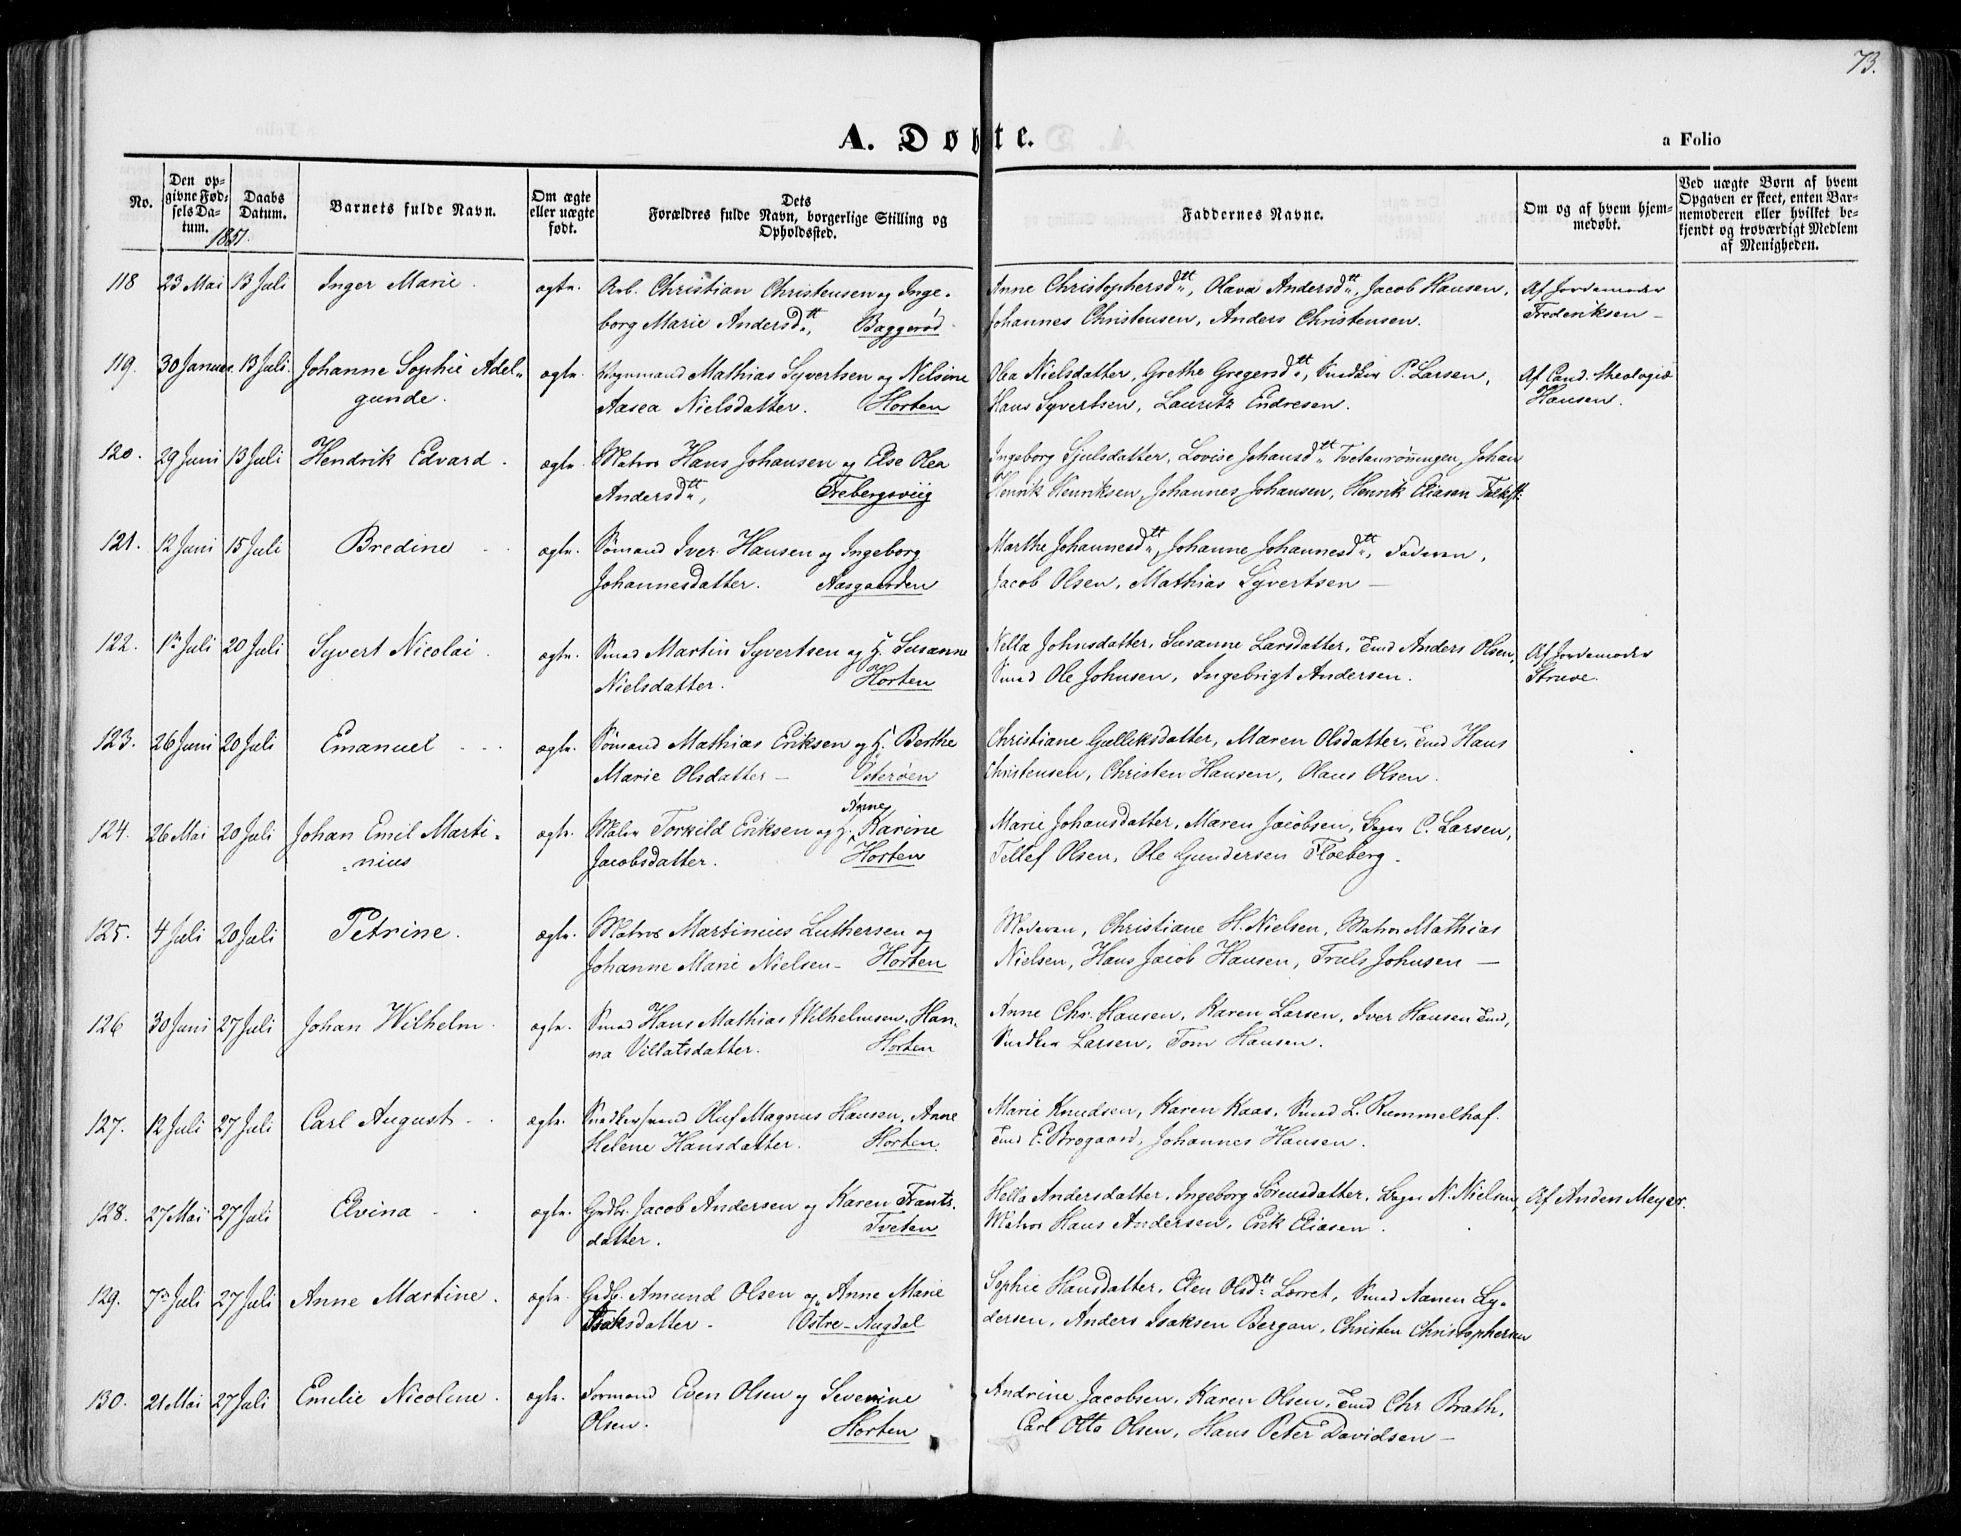 73.
A. Døbte.
a Folio
No.
Den op-
givne Fød-
sels Da-
tum.
Daabs
Datum.
1851.
Barnets fulde Navn.
Om ægte
eller uægte
født.
Dets
Forældres fulde Navn, borgerlige Stilling og
Opholdssted.
Faddernes Navne.
Om og af hvem hjem-
medøbt.
Ved uægte Børn af hvem
Opgaven er skeet, enten Bar-
nemoderen eller hvilket be-
kjendt og troværdigt Medlem
af Menigheden.
118 23 Mai 13 Juli Inger Marie. ægte. Arb. Christian Christensen og Inge- Anne Christophersdtt, Olava Andersdtt, Jacob Hansen, Af Jordemoder
borg Marie Andersdtt, Baggerød Johannes Christensen, Anders Christensen. Frederiksen –
119. 30 Januar. 13 Juli. Johanne Sophie Adel- ægte. Mathias Syvertsen og Nilsine Olea Nielsdatter, Grethe Gregersdtt, Snedker P. Larsen, Af Cand. theologiæ
gunde. Aasea Nielsdatter. Horten Hans Syvertsen, Lauritz Endresen. Hansen.
120. 29 Juni 13 Juli Hendrik Edvard. ægte. Matros Hans Johansen og Else Olea Ingeborg Gjulsdatter, Lovise Johansdtt Tvetanrønningen, Johan
Andersdtt, Trebergsviig Henrik Henriksen, Johannes Johansen, Henrik Eliasen
121. 12 Juni 15 Juli Bredine ægte. Sømand Iver Hansen og Ingeborg Marthe Johannesdtt, Johanne Johannesdtt, Faderen,
Johannesdatter. Aasgaarden Jacob Olsen, Mathias Syvertsen –
122. 1ste Juli 20 Juli Syvert Nicolai. ægte. Smed Martin Syvertsen og H. Susanne Nella Johnsdatter, Susanne Larsdatter, Tmd Anders Olsen, Af Jordemoder
Nielsdatter. Horten Smed Ole Johnsen, Ingebrigt Andersen. Struve.
123. 26 Juni 20 Juli Emanuel ægte. Sømand Mathias Eriksen og H. Berthe Christiane Gulliksdatter, Maren Olsdatter, Tmd Hans
Marie Olsdatter – Østerøen Christensen, Christen Hansen, Olaus Olsen.
124. 26 Mai 20 Juli Johan Emil Marti- ægte. Maler Torkild Eriksen og H. Anne Karine Marie Johansdatter, Maren Jacobsen, Bager C. Larsen,
nius Jacobsdatter. Horten Tellef Olsen, Ole Gundersen Floeberg.
125. 4 Juli 20 Juli Petrine. ægte. Matros Martinius Luthersen og Moderen, Christiane H. Nielsen, Matros Mathias
Johanne Marie Nielsen – Horten Nielsen, Hans Jacob Hansen, Truls Johnsen –
126 30 Juni 27 Juli Johan Wilhelm. ægte. Smed Hans Mathias Wilhelmsen, Han- Anne Chr. Hansen, Karen Larsen, Iver Hansen Tmd,
na Villatsdatter. Horten Snedker Larsen, Tom Hansen.
127. 12 Juli 27 Juli Carl August ægte. Snedkersvend Oluf Magnus Hansen, Anne Marie Knudsen, Karen Kaas, Smed L. Rummelhof.
Helene Hansdatter. Horten. Tmd E. Brogaard, Johannes Hansen.
128. 27 Mai 27 Juli Elvina ægte. Grdbr. Jacob Andersen og Karen Frants- Hella Andersdatter, Ingeborg Sørensdatter, Bager N. Nielsen, Af Anden Meyer.
datter. Tveten Matros Hans Andersen, Erik Eliasen.
129. 7de Juli 27 Juli Anne Martine. ægte. Grdbr. Amund Olsen og Anne Marie Sophie Hansdatter, Elen Olsdtt Lørret, Smed Aanen Ly-
Isaksdatter – Østre-Augdal dersen, Anders Isaksen Bergan, Christen Christophersen
130. 21 Mai 27 Juli Emilie Nicoline. ægte. Formand Even Olsen og Severine Andrine Jacobsen, Karen Olsen, Tmd Chr. Brath,
Olsen. Horten Carl Otto Olsen, Hans Peter Davidsen –